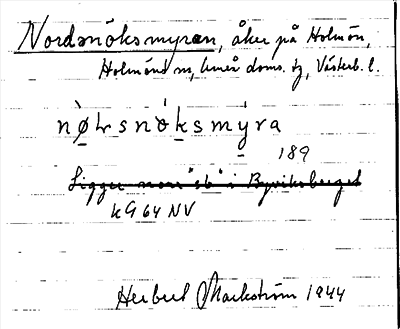 Nordsnöksmyren, åker på Holmön,
Holmönd sn, Umeå doms. tg, Västerb. l.
nø̀Ls nöksmy̆ra
189
Ligger norr "sb" i Byviksberget
k9 64 NV
Herbert Markström 1944